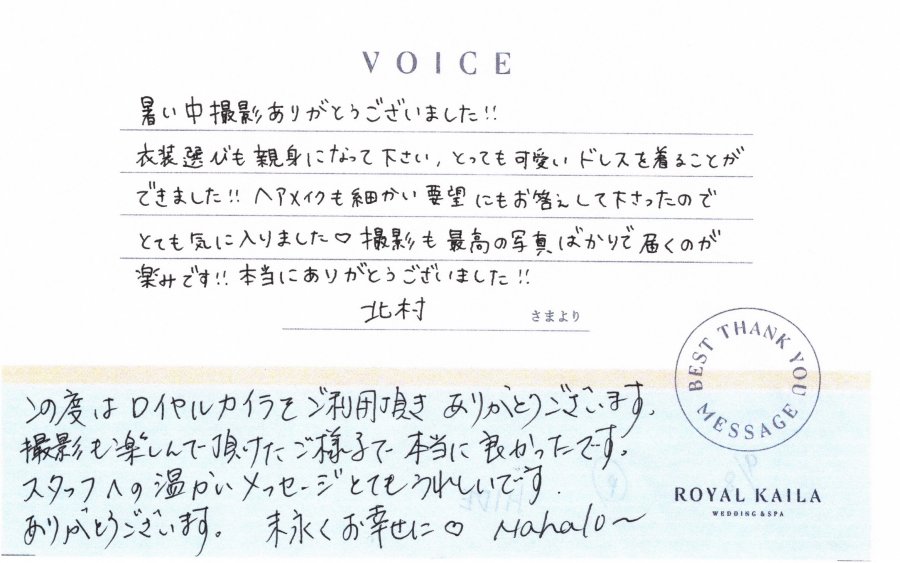 VOICE
暑い中撮影ありがとうございました!!
衣装選びも親身になって下さい、とっても可愛いドレスを着ることが
できました!! ヘアメイクも細かい要望にもお答えして下さったので
とても気に入りました♡ 撮影も最高の写真ばかりで届くのが
楽みです!! 本当にありがとうございました!!
北村 さまより
BEST THANK YOU MESSAGE
この度はロイヤルカイラをご利用頂きありがとうございます。
撮影も楽しんで頂けたご様子で本当に良かったです。
スタッフへの温かいメッセージとてもうれしいです.
ありがとうございます。 末永くお幸せに♡ Mahalo〜
ROYAL KAILA
WEDDING & SPA